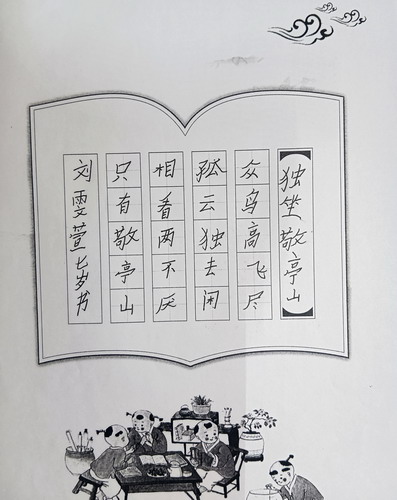 独坐敬亭山
众鸟高飞尽
孤云独去闲
相看两不厌
只有敬亭山
刘雯萱七岁书